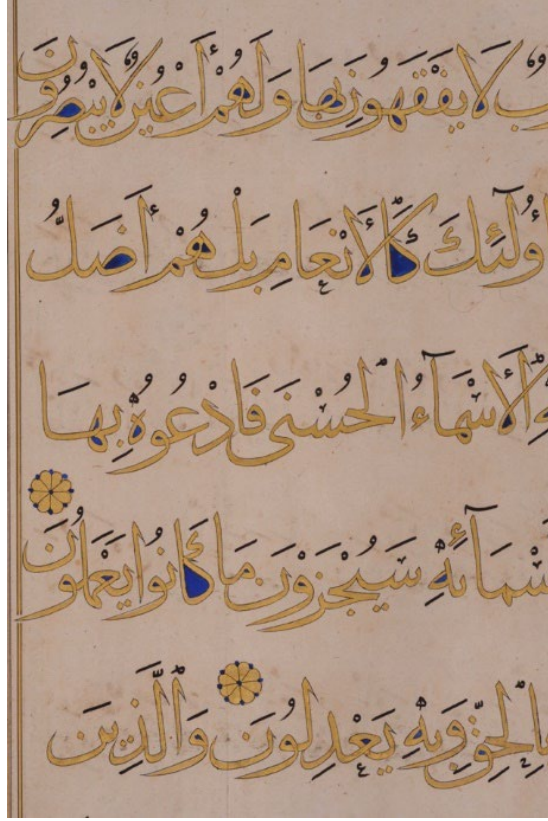 لَا يَفْقَهُونَ بِهَا وَلَهُمْ أَعْيُنٌ لَا يُبْصِرُونَ
أُولَٰئِكَ كَالْأَنْعَامِ بَلْ هُمْ أَضَلُّ
الْأَسْمَآءُ الْحُسْنَى فَادْعُوهُ بِهَا
سْمَآئِهِ سَيُجْزَوْنَ مَا كَانُوا يَعْمَلُونَ
بِالْحَقِّ وَبِهِ يَعْدِلُونَ وَالَّذِينَ